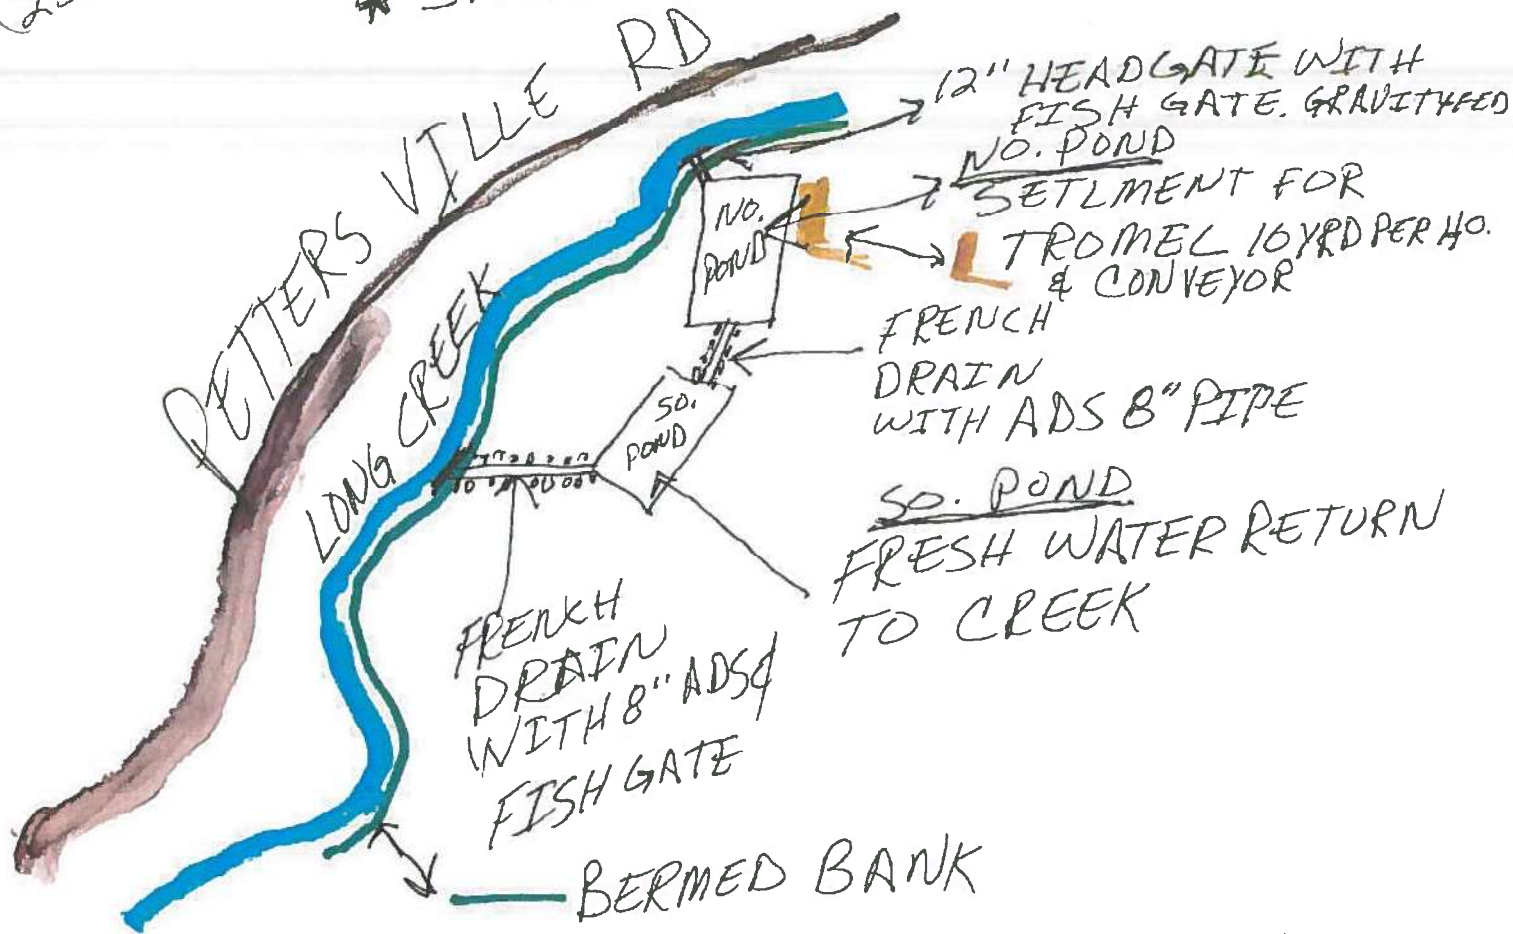 PETTERS VILLE RD
12" HEADGATE WITH
FISH GATE. GRAVITY FED
NO. POND
SETLMENT FOR
TROMEL 10 YRD PER HO.
& CONVEYOR
NO.
POND
LONG CREEK
FRENCH
DRAIN
WITH ADS 8" PIPE
SO.
POND
SO. POND
FRESH WATER RETURN
TO CREEK
FRENCH
DRAIN
WITH 8" ADS &
FISH GATE
BERMED BANK